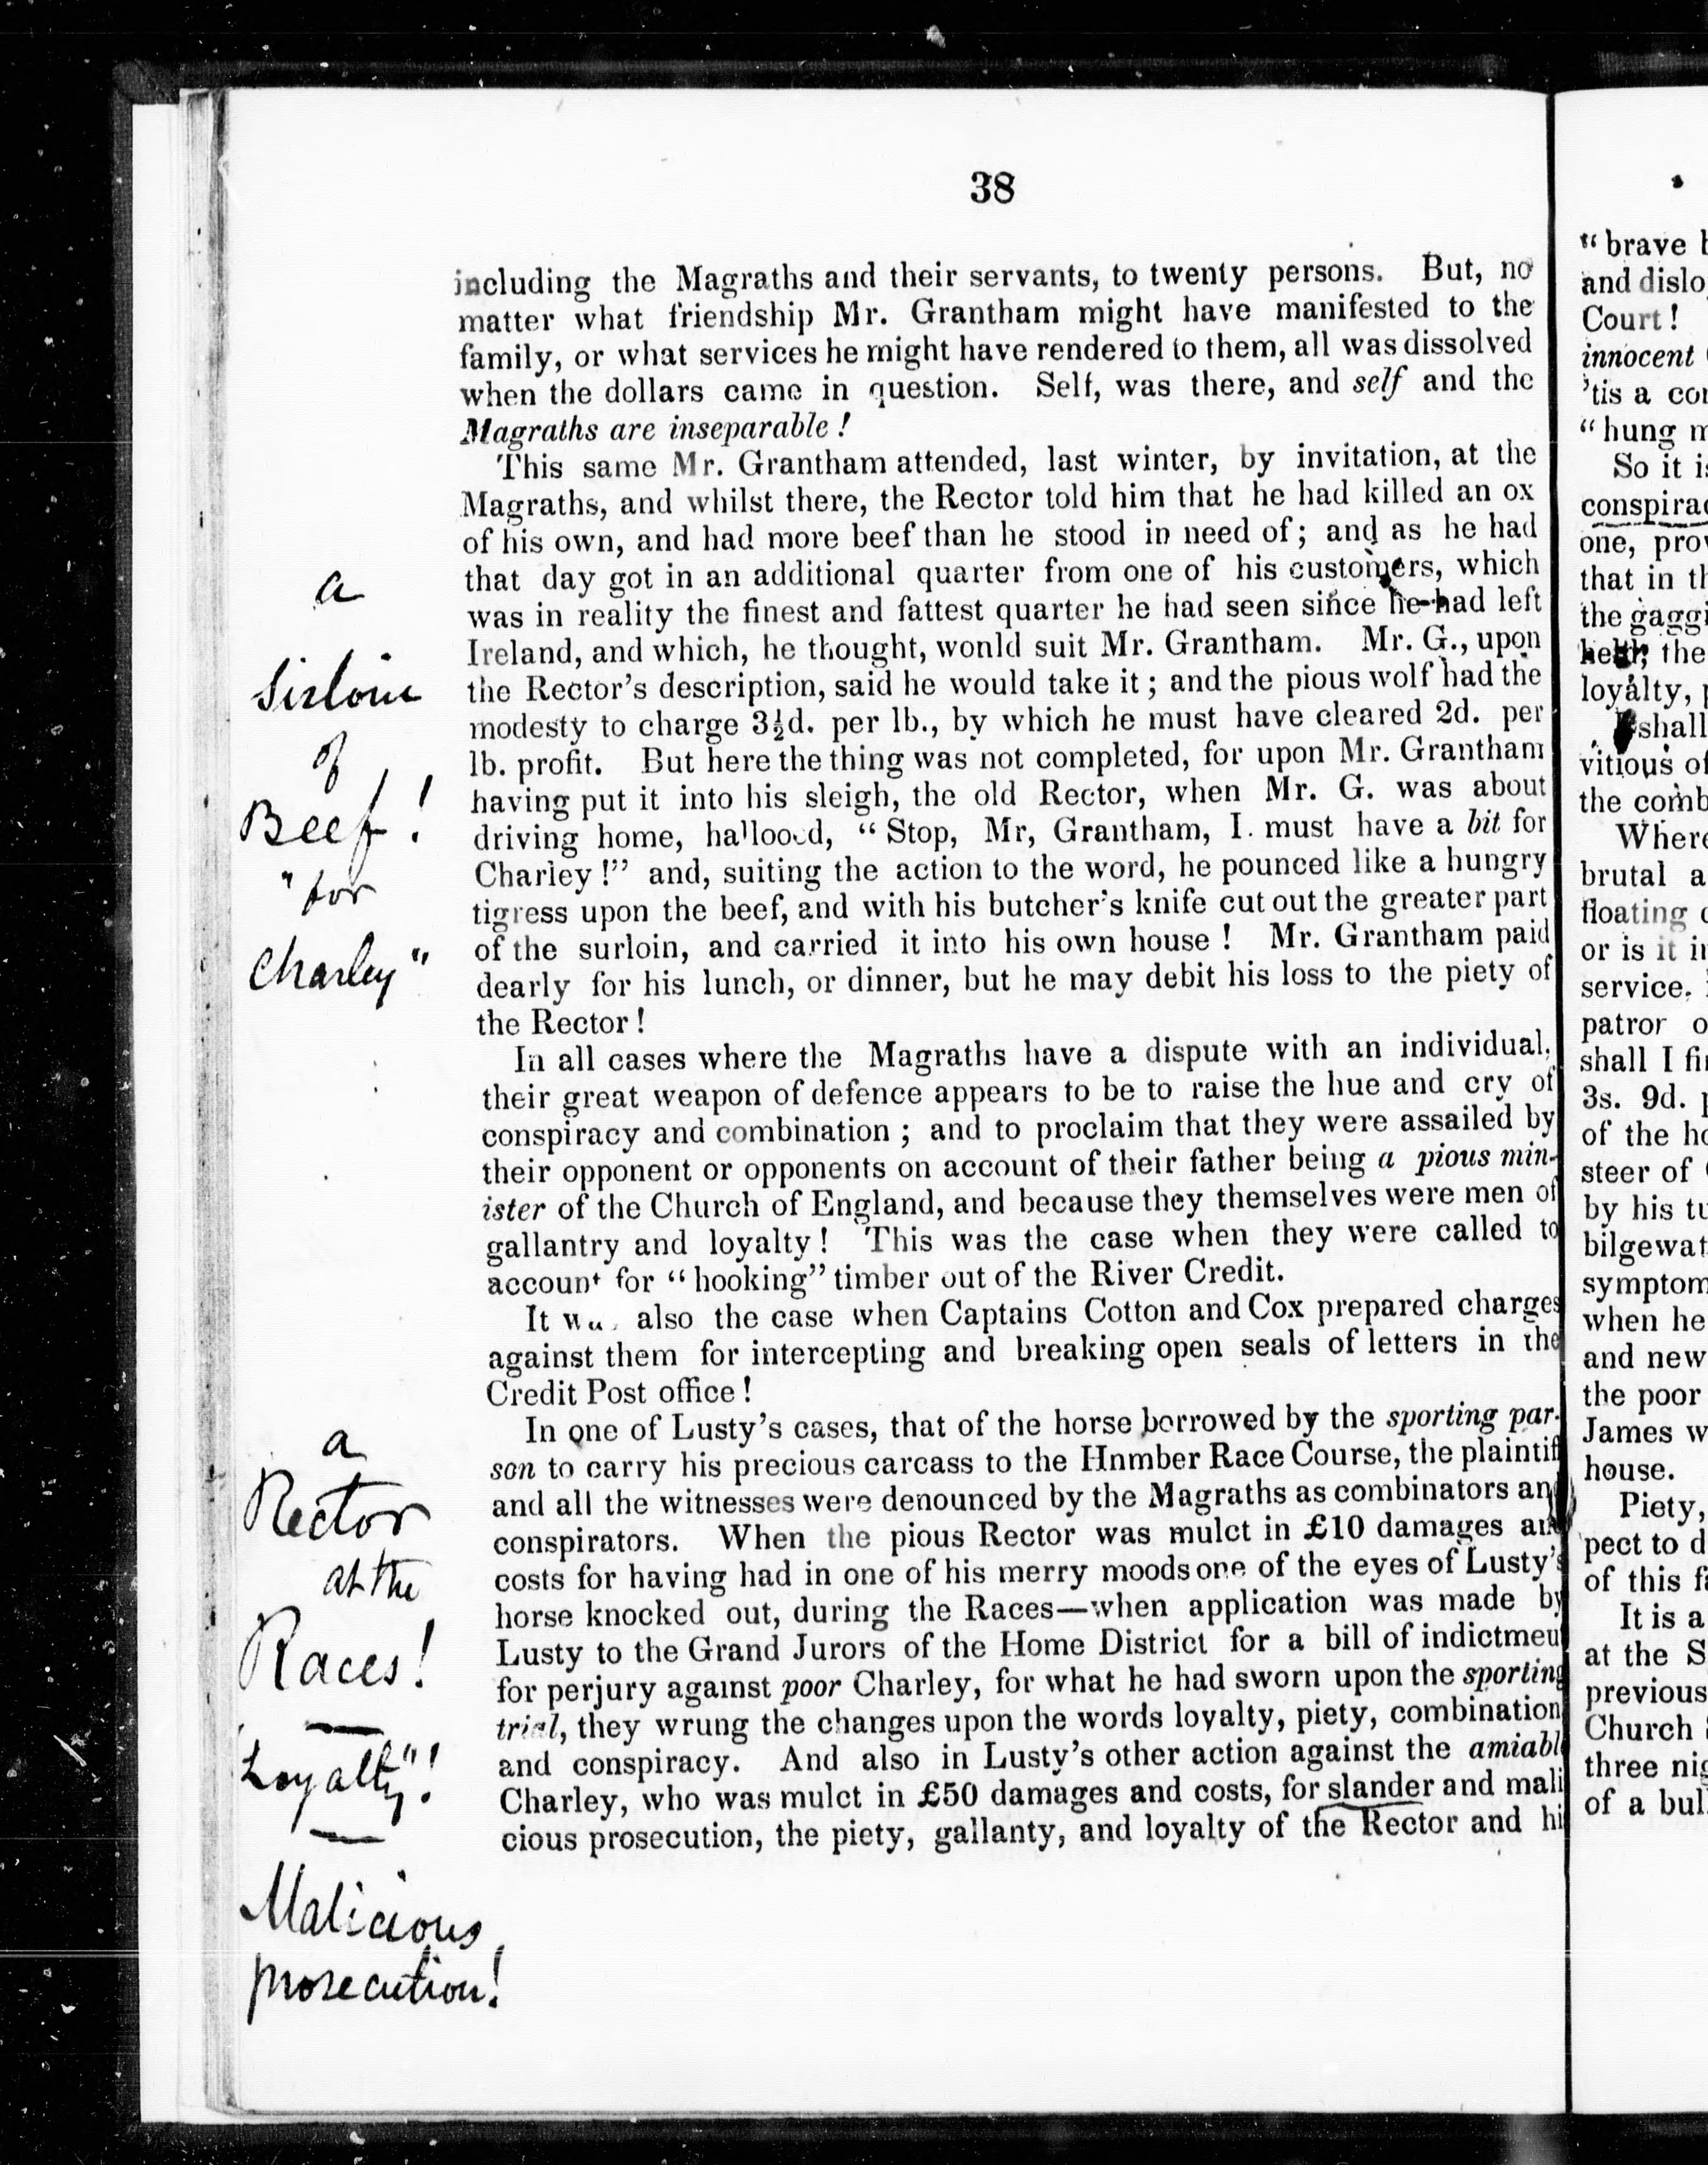 38
including the Magraths and their servants, to twenty persons. But, no
matter what friendship Mr. Grantham might have manifested to the
family, or what services he might have rendered to them, all was dissolved
when the dollars came in question. Self, was there, and self and the
Magraths are inseparable !
This same Mr. Grantham attended, last winter, by invitation, at the
Magraths, and whilst there, the Rector told him that he had killed an ox
of his own, and had more beef than he stood in need of; and as he had
that day got in an additional quarter from one of his customers, which
was in reality the finest and fattest quarter he had seen since he had left
Ireland, and which, he thought, wonld suit Mr. Grantham. Mr. G., upon
the Rector's description, said he would take it; and the pious wolf had the
modesty to charge 3½d. per lb., by which he must have cleared 2d. per
lb. profit. But here the thing was not completed, for upon Mr. Grantham
having put it into his sleigh, the old Rector, when Mr. G. was about
driving home, hallooed, “Stop, Mr, Grantham, I must have a bit for
Charley!” and, suiting the action to the word, he pounced like a hungry
tigress upon the beef, and with his butcher's knife cut out the greater part
of the surloin, and carried it into his own house ! Mr. Grantham paid
dearly for his lunch, or dinner, but he may debit his loss to the piety of
the Rector!
In all cases where the Magraths have a dispute with an individual,
their great weapon of defence appears to be to raise the hue and cry of
conspiracy and combination ; and to proclaim that they were assailed by
their opponent or opponents on account of their father being a pious min-
ister of the Church of England, and because they themselves were men of
gallantry and loyalty! This was the case when they were called to
account for “hooking” timber out of the River Credit.
It was also the case when Captains Cotton and Cox prepared charges
against them for intercepting and breaking open seals of letters in the
Credit Post office!
In one of Lusty's cases, that of the horse borrowed by the sporting par-
son to carry his precious carcass to the Hnmber Race Course, the plaintiff
and all the witnesses were denounced by the Magraths as combinators and
conspirators. When the pious Rector was mulct in £10 damages and
costs for having had in one of his merry moods one of the eyes of Lusty's
horse knocked out, during the Races—when application was made by
Lusty to the Grand Jurors of the Home District for a bill of indictmeu
for perjury against poor Charley, for what he had sworn upon the sporting
trial, they wrung the changes upon the words loyalty, piety, combination
and conspiracy. And also in Lusty's other action against the amiabl
Charley, who was mulct in £50 damages and costs, for slander and mali
cious prosecution, the piety, gallanty, and loyalty of the Rector and hi
a
Sirloin
of
Beef!
"for
Charley"
a
Rector
at the
Races!
Loyalty"!
Malicious
prosecution!
“brave
and dislo
Court!
innocent
'tis a con
“hung m
So it is
conspirac
one, prov
that in th
the gaggi
the
loyalty,
shall
vitious of
the comb
Where
brutal a
floating
or is it in
service.
patror o
shall I fin
3s. 9d. p
of the ho
steer of
by his tu
bilgewat
symptom
when he
and new
the poor
James w
house.
Piety,
pect to d
of this fa
It is a
at the S
previous
Church
three nig
of a bul